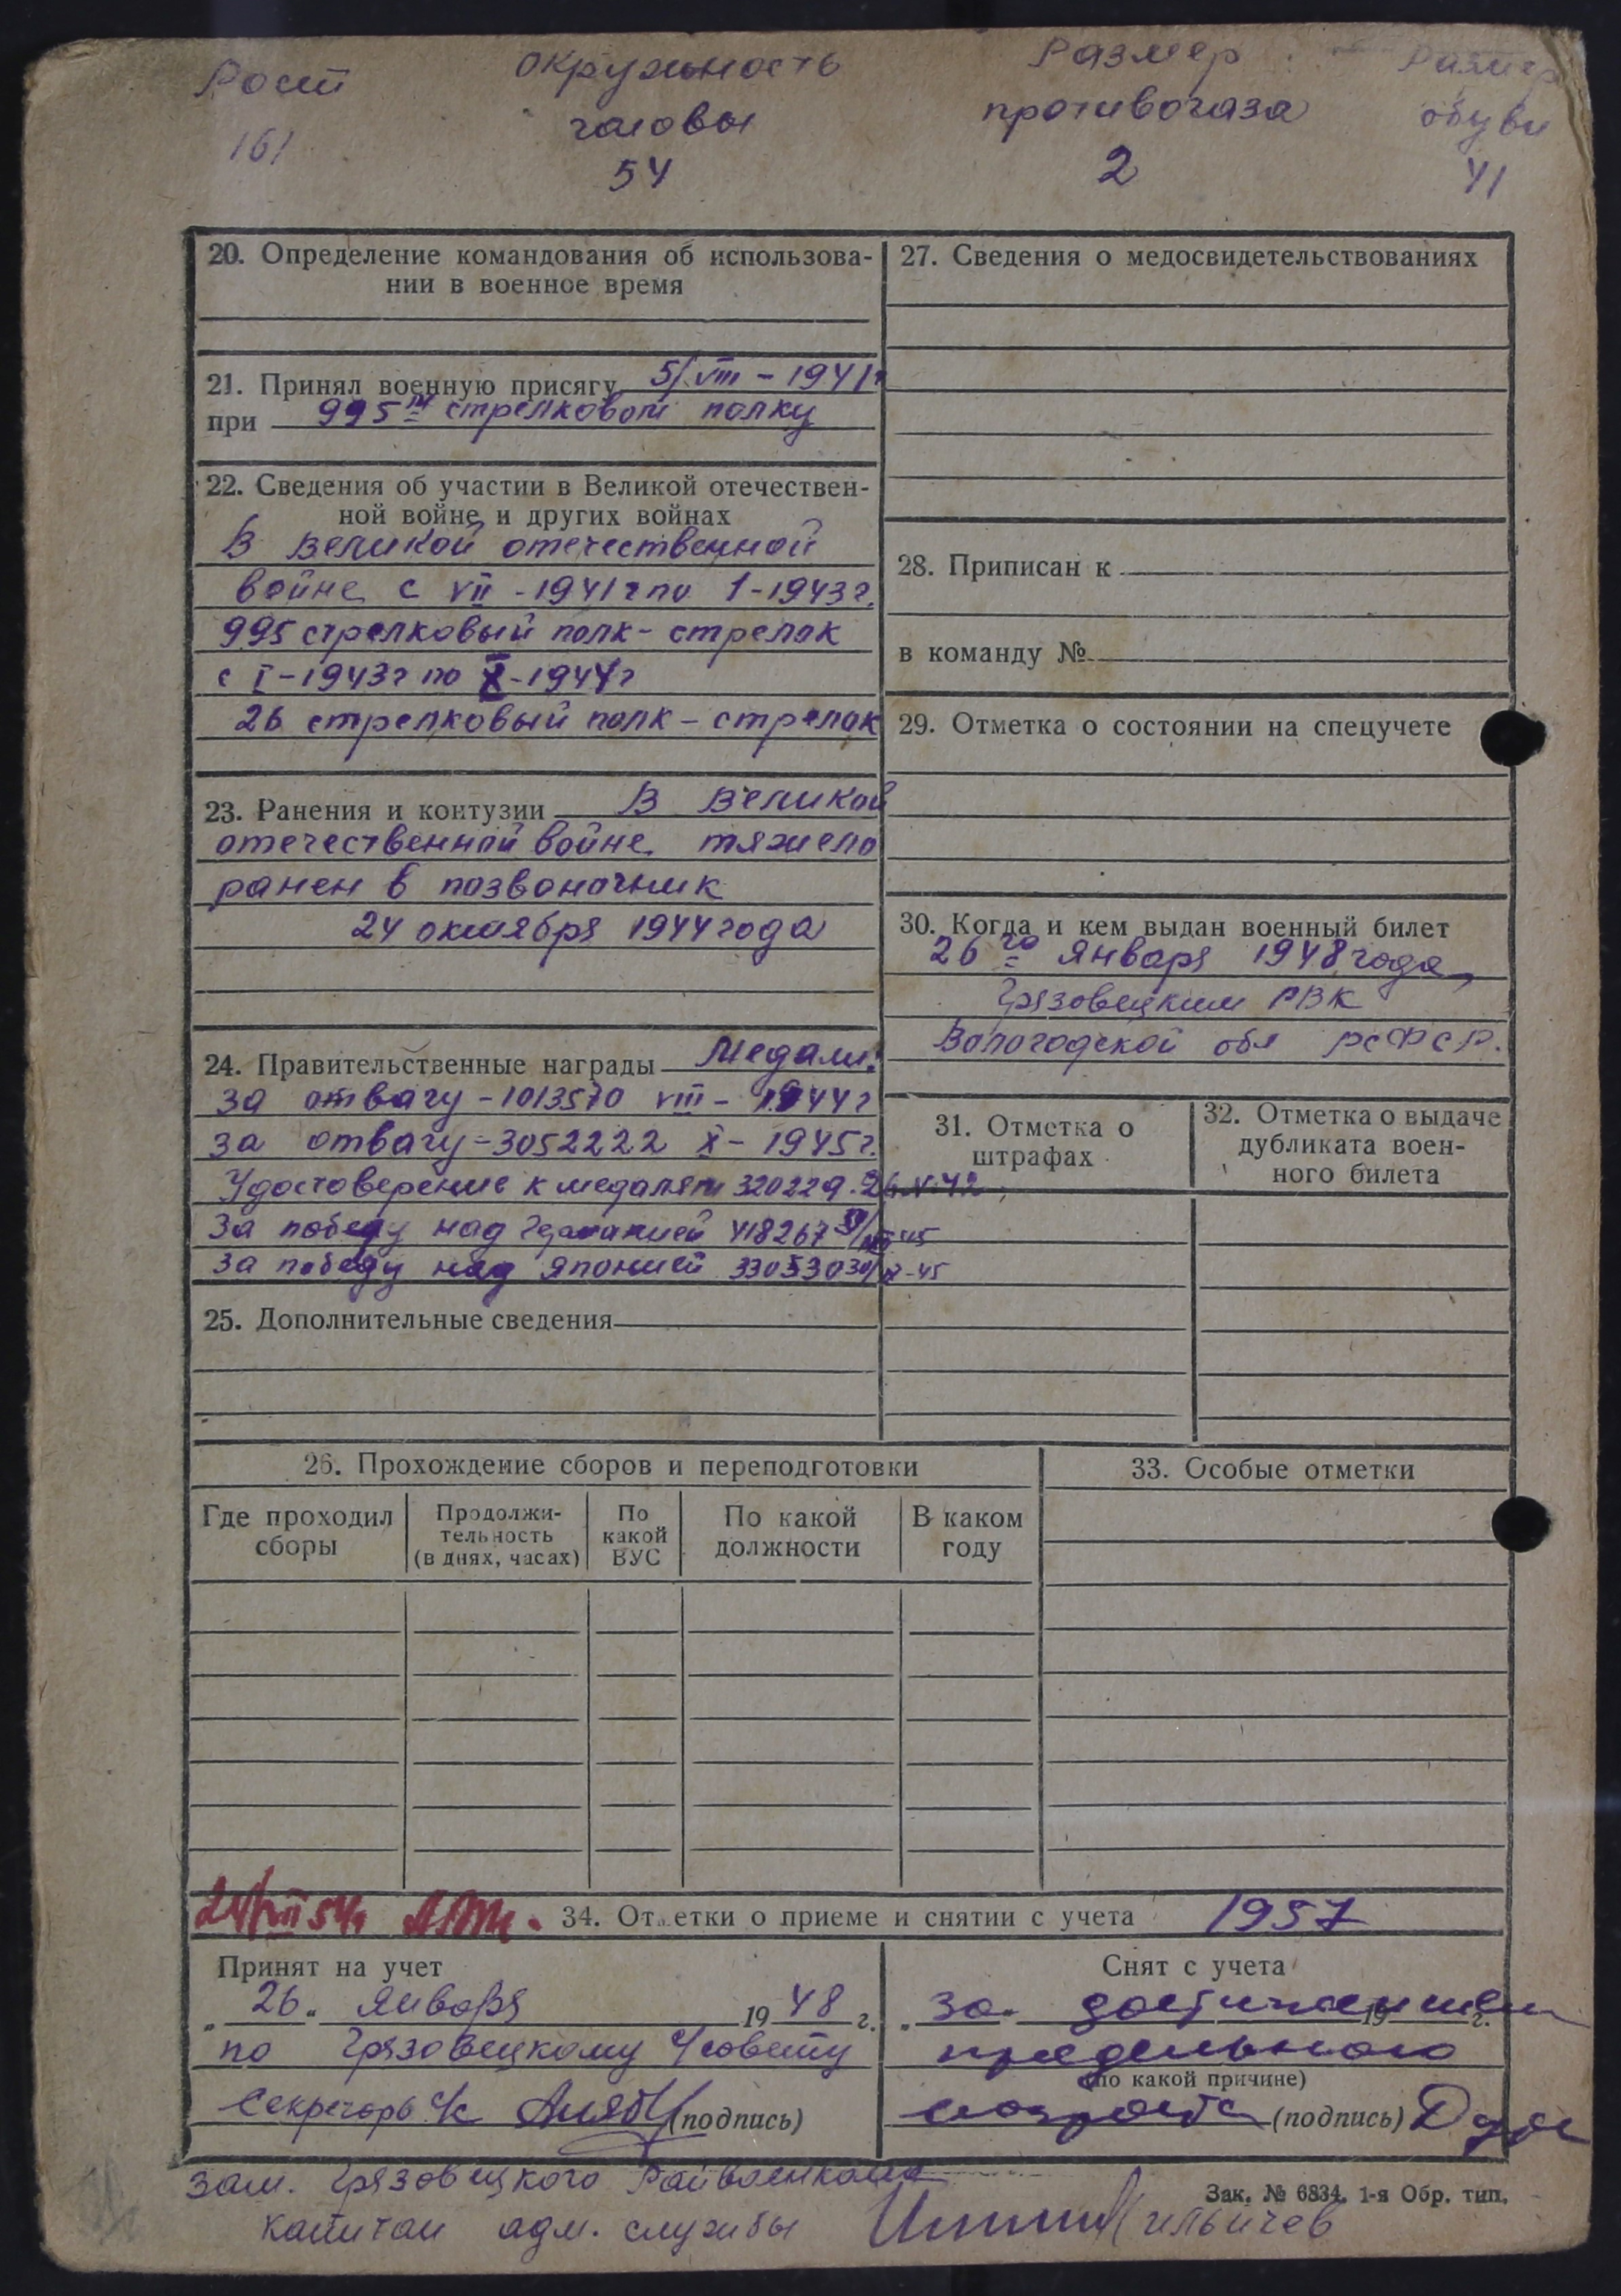 Рост
окружность
головы
Размер
противогаза
Размер
обуви
161
54
2
41
20. Определение командования об использова-
нии в военное время
21. Принял военную присягу 5/VIII - 1941г
при 995м стрелковом полку
22. Сведения об участии в Великой отечествен-
ной войне и других войнах
В великой отечественной
войне с VII - 1941г по 1-1943г.
995 стрелковый полк - стрелок
с I-1943г по X-1944г
26 стрелковый полк - стрелок
23. Ранения и контузии В Великой
отечественной войне тяжело
ранен в позвоночник
24 октября 1944 года
24. Правительственные награды Медали:
за отвагу - 1013570 VIII - 1944г
за отвагу - 3052222 X - 1945г.
Удостоверение к медалям 320229.
за победу над Германией 418267
за победу над Японией 330530 30/IX-45
25. Дополнительные сведения
27. Сведения о медосвидетельствованиях
28. Приписан к
в команду №
29. Отметка о состоянии на спецучете
30. Когда и кем выдан военный билет
26го января 1948 года
Грязовецким РВК
Вологодской обл РСФСР.
31. Отметка о
штрафах
32. Отметка о выдаче
дубликата воен-
ного билета
26. Прохождение сборов и переподготовки
Где проходил
сборы
Продолжи-
тельность
(в днях, часах)
По
какой
ВУС
По какой
должности
В каком
году
33. Особые отметки
34. Отметки о приеме и снятии с учета 1957
Принят на учет
„26„ января 1948 г.
по Грязовецкому с/совету
Секретарь с/с (подпись)
Снят с учета
за достижением 19 г.
предельного
(по какой причине)
возраста (подпись)
зам. Грязовецкого Райвоенкома
капитан адм. службы Ильичев
Зак. № 6834. 1-я Обр. тип.